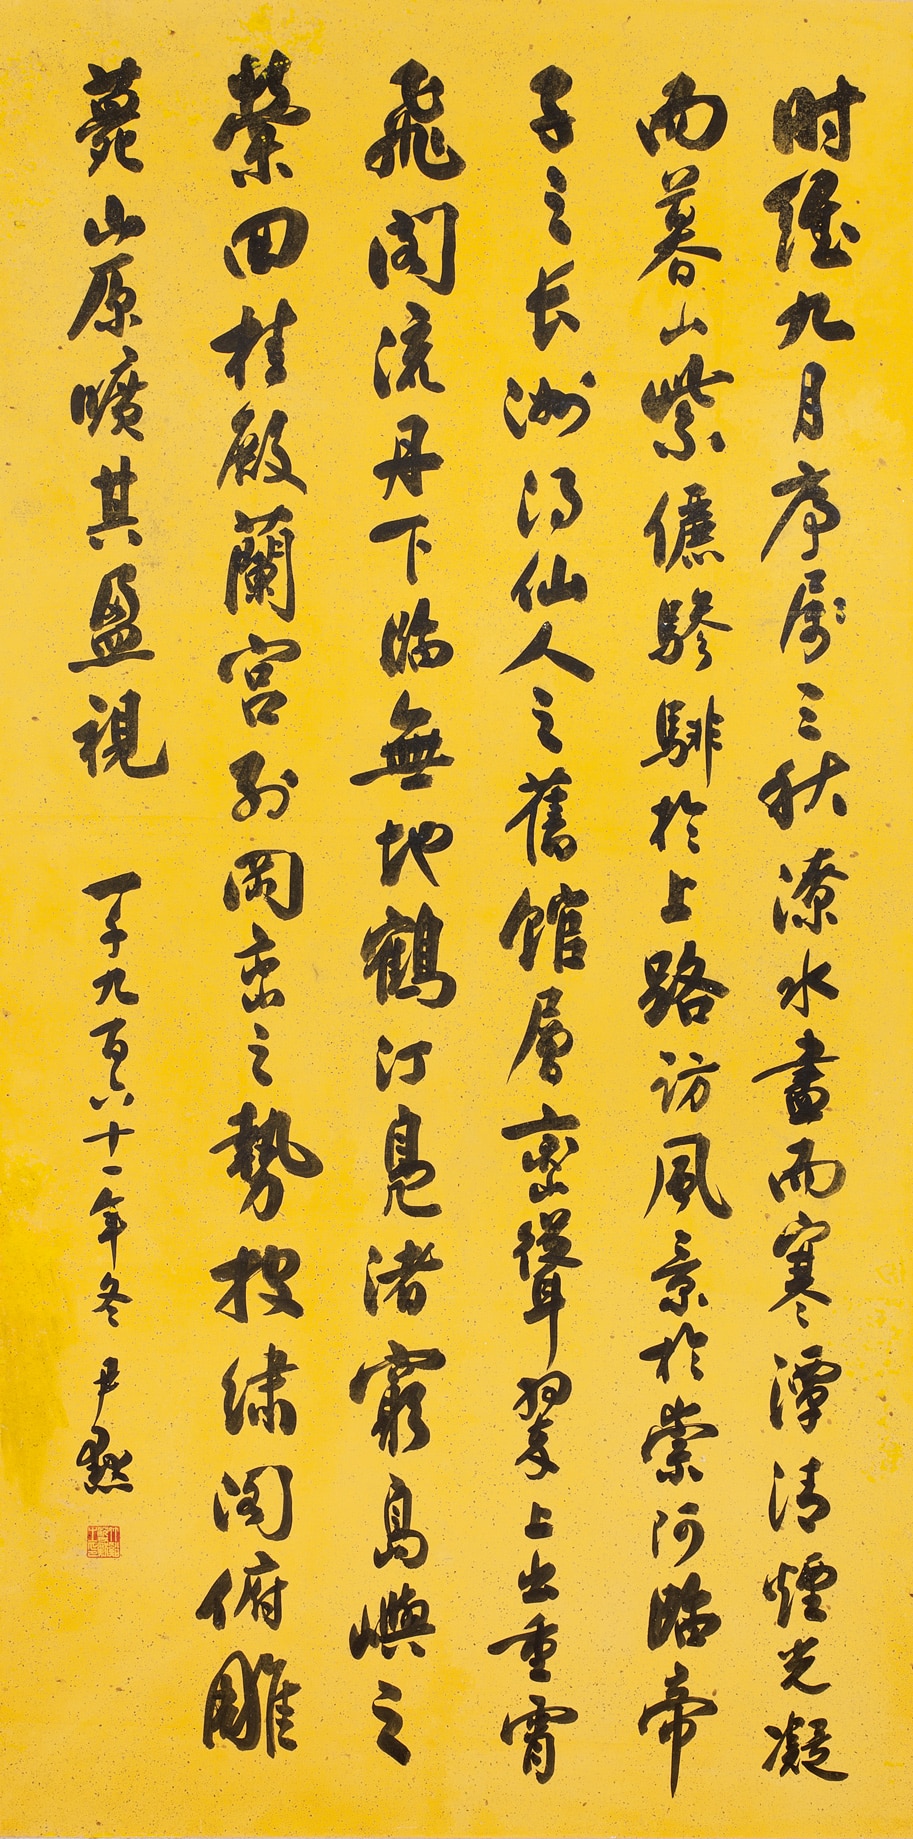 时維九月序属三秋潦水盡而寒潭清煙光凝
而暮山紫儼驂騑於上路訪風景於崇阿臨帝
子之长洲得仙人之舊館層巒聳翠上出重霄
飛閣流丹下臨無地鶴汀鳧渚窮島嶼之
縈回桂殿蘭宮列岡巒之勢披繡闥俯雕
甍山原曠其盈視 一千九百六十一年冬 尹默